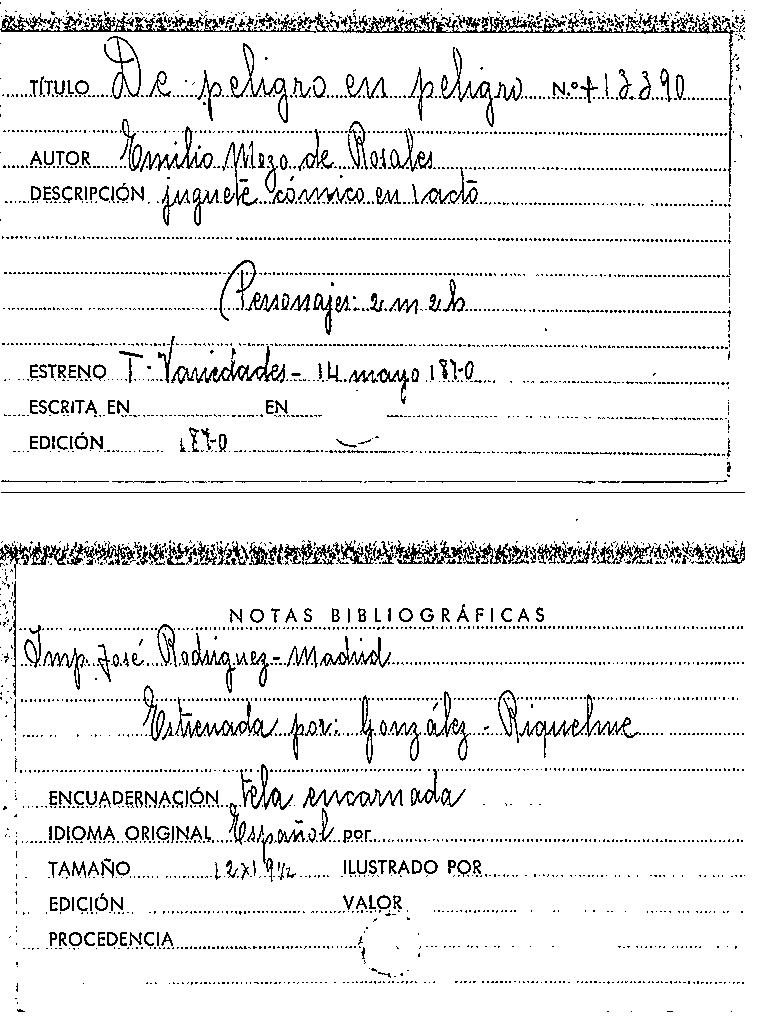 TÍTULO De peligro en peligro N.º +13390
AUTOR Emilio Mozo de Rosales
DESCRIPCIÓN juguete cómico en 1 acto
Personajes: 2 m 2 h
ESTRENO T. Variedades - 14 mayo 1870
ESCRITA EN EN
EDICIÓN 1870
NOTAS BIBLIOGRÁFICAS
Imp. José Rodríguez - Madrid
Estrenada por: González - Riquelme
ENCUADERNACIÓN tela encarnada
IDIOMA ORIGINAL Español por
TAMAÑO 12x19½ ILUSTRADO POR
EDICIÓN VALOR
PROCEDENCIA